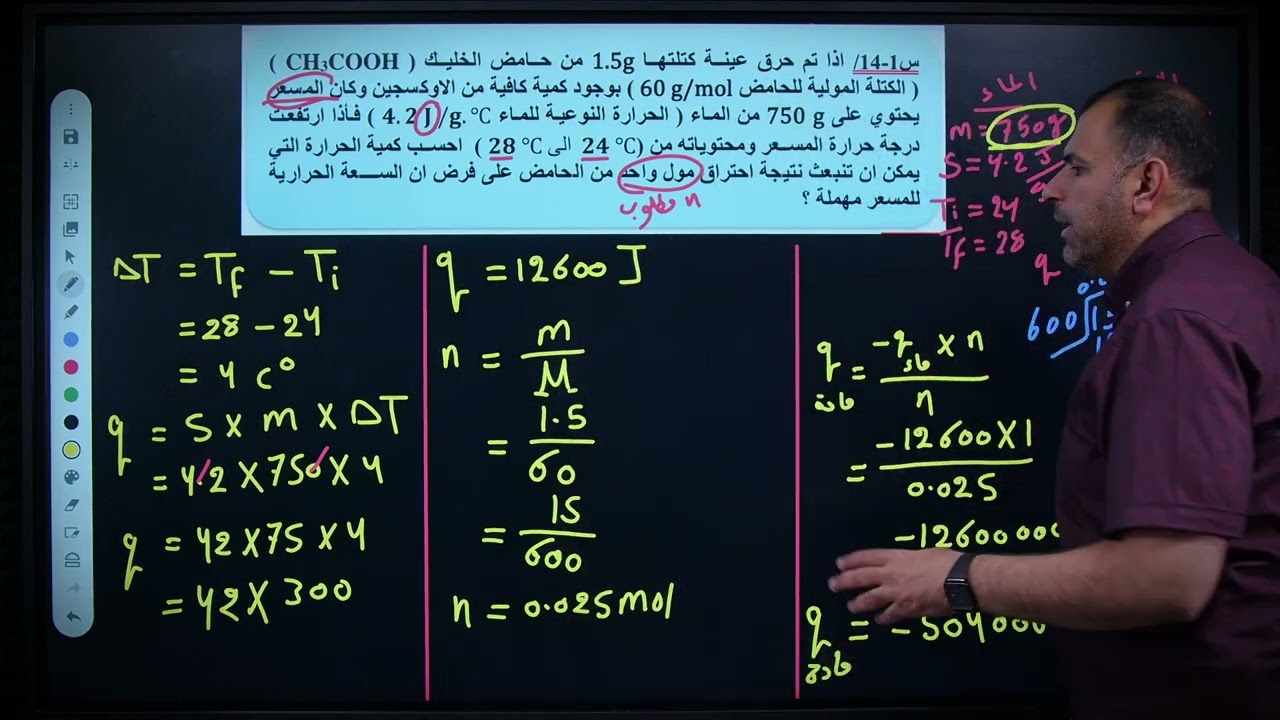 س1-14/ اذا تم حرق عينة كتلتها 1.5g من حامض الخليك ( CH₃COOH )
( الكتلة المولية للحامض 60 g/mol ) بوجود كمية كافية من الاوكسجين وكان المسعر
يحتوي على 750 g من الماء ( الحرارة النوعية للماء 4.2 J/g.°C ) فأذا ارتفعت
درجة حرارة المسعر ومحتوياته من (24 °C الى 28 °C ) احسب كمية الحرارة التي
يمكن ان تنبعث نتيجة احتراق مول واحد من الحامض على فرض ان السعة الحرارية
للمسعر مهملة ؟
n مطلوب
الماء
m = 750g
S = 4.2 J
Ti = 24
Tf = 28
q
ΔT = Tf - Ti
= 28 - 24
= 4 c°
q = S × m × ΔT
= 4.2 × 750 × 4
q = 42 × 75 × 4
= 42 × 300
q = 12600 J
n = m / M
= 1.5 / 60
= 15 / 600
n = 0.025 mol
q مادة = -q ماء × n / n
= -12600 × 1 / 0.025
-12600000
q مادة = -504000
600